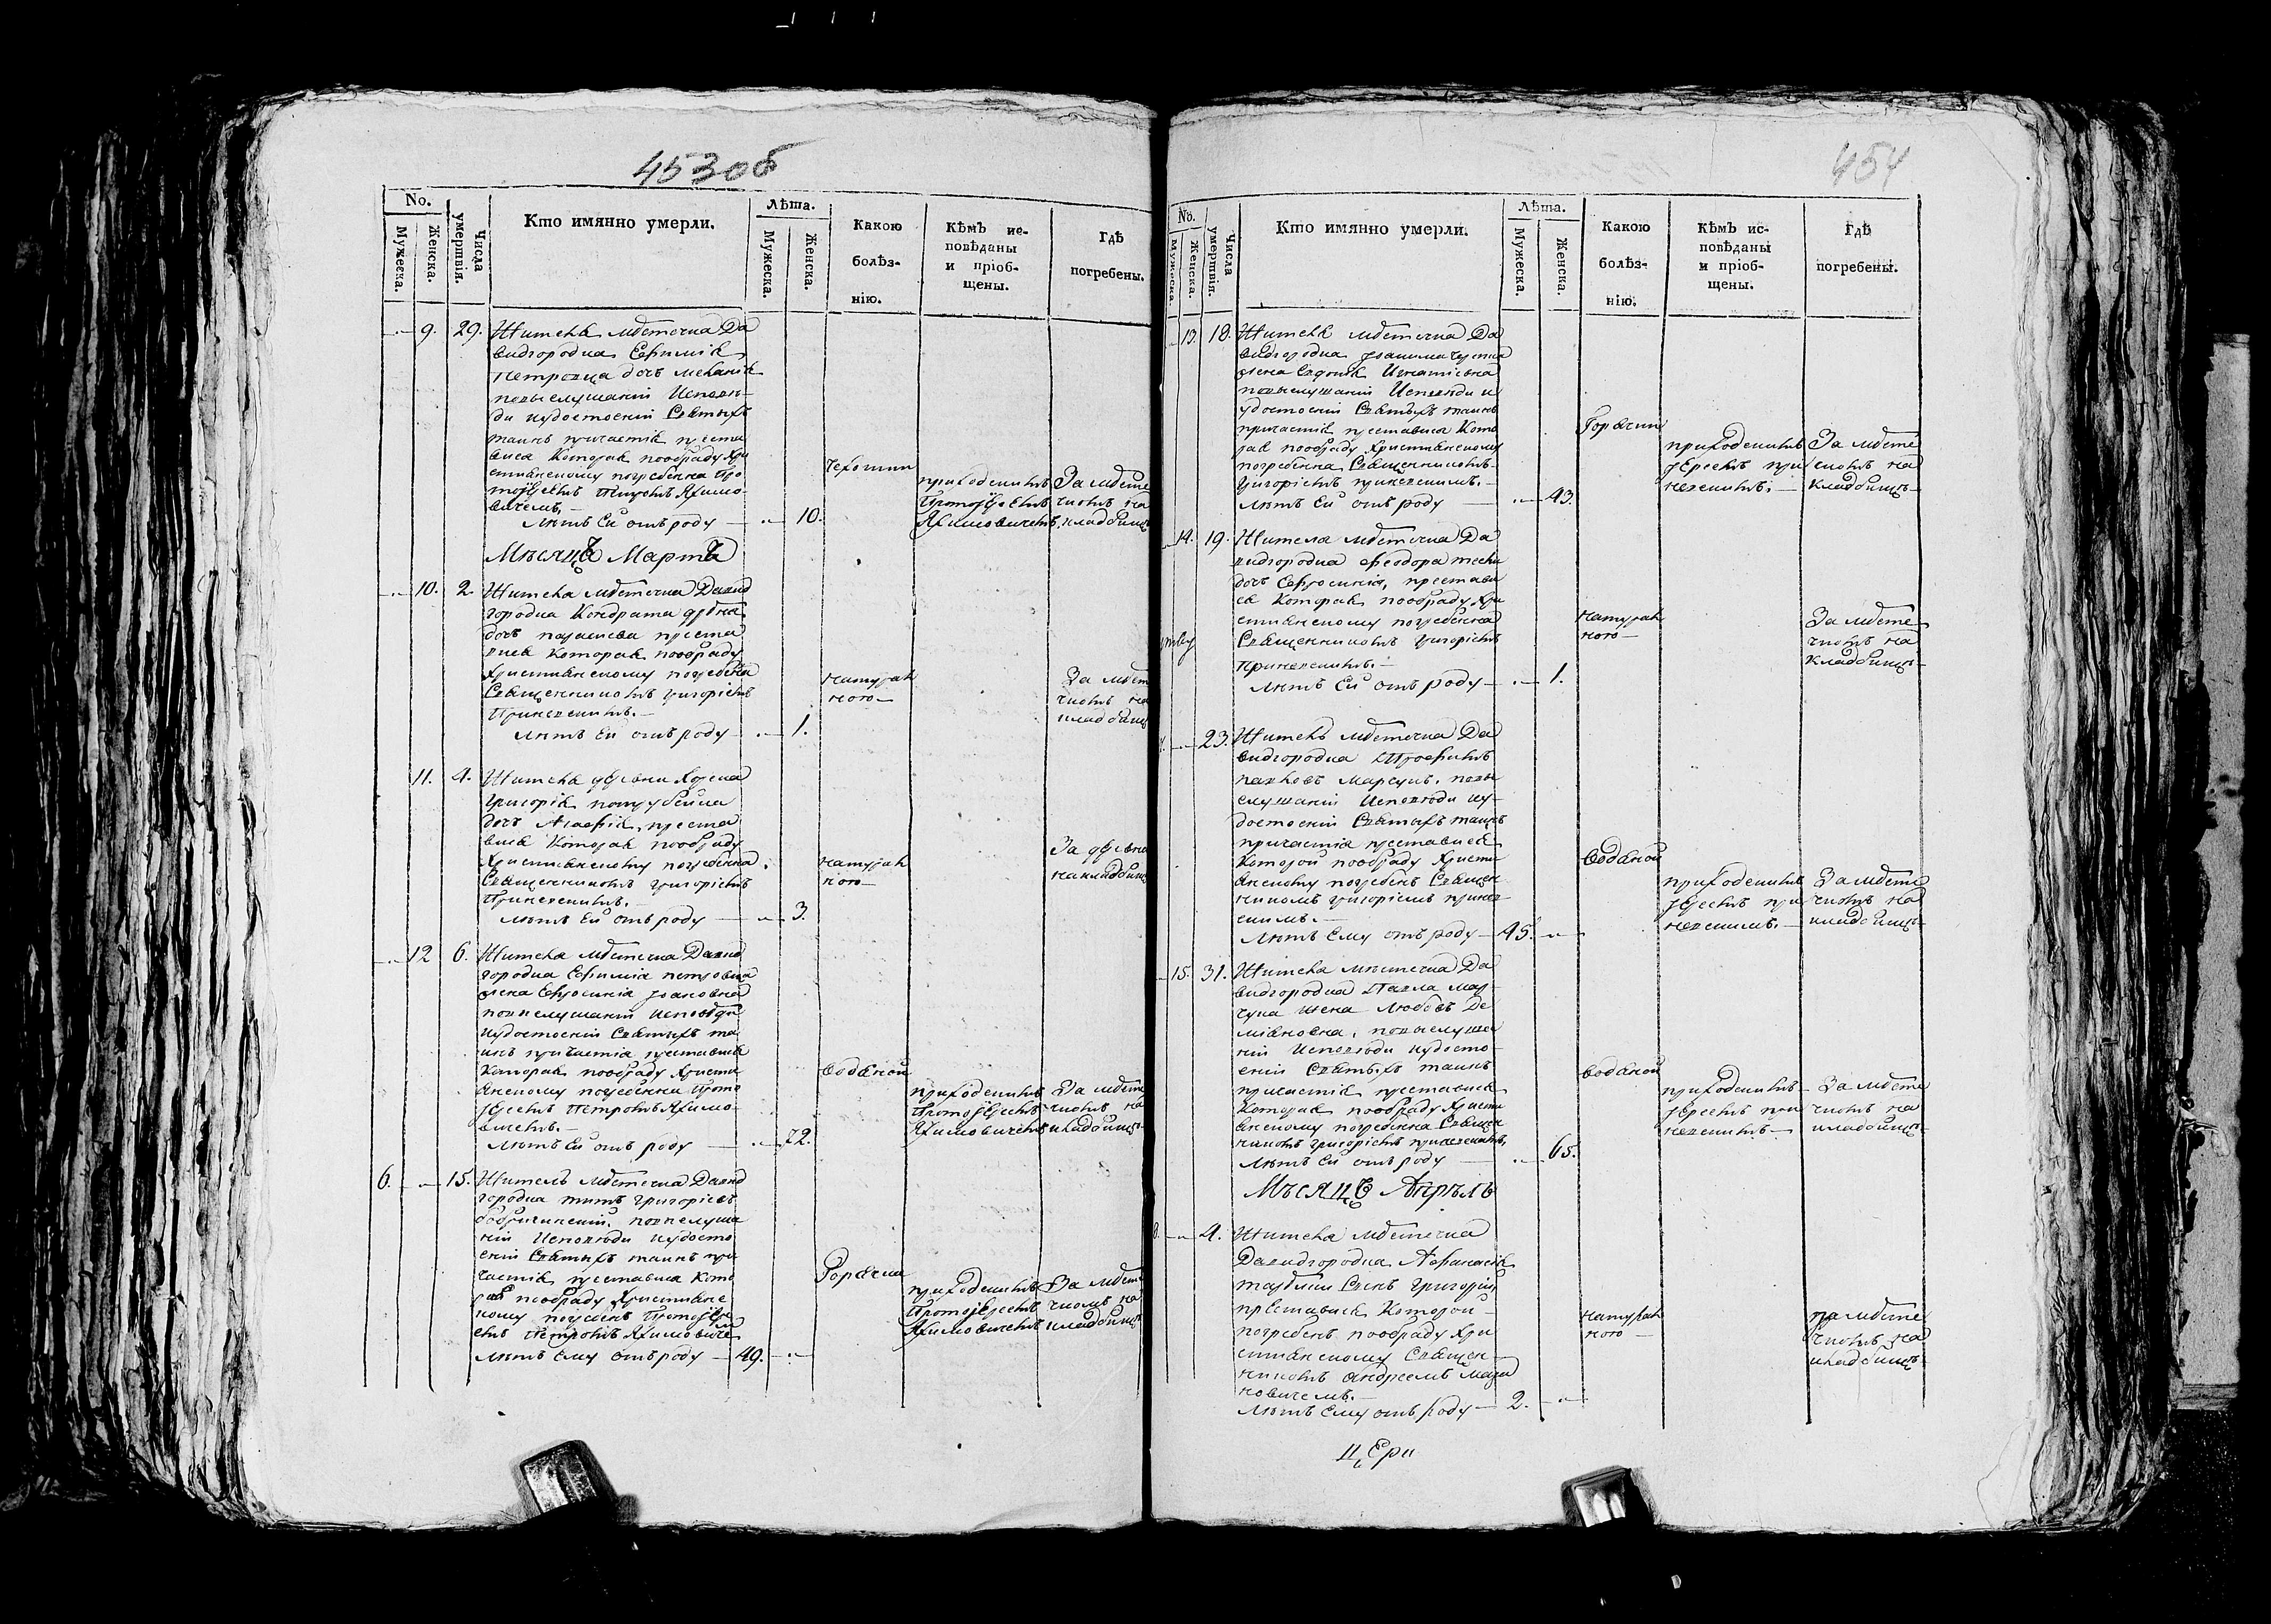 453об
No.
Мужеска.
Женска.
Числа умертвія.
Кто имянно умерли.
Лѣта.
Мужеска.
Женска.
Какою болѣз-
нію.
Кѣмъ ис-
повѣданы
и пріоб-
щены.
Гдѣ
погребены.
9. 29. Жителя мѣстечка Да
видгородка Ефимія
Петровца дочь Меланія
повыслушаніи Исповѣ-
ди иудостоеніи Святыхъ
таинъ причастія преста
вися Которая пообряду Хри
стіянскому погребенна Про
тоіереемъ Петромъ Яхимо-
вичемъ.
Лѣтъ Ей отъ роду 10.
Чехотки
приходскимъ
Протоіереемъ
Яхимовичемъ.
За мѣсте
чкомъ на
кладбищѣ
Мѣсяцъ Мартъ
10. 2. Жителя мѣстечка Давид
городка Кондрата
дочь преста
вися Которая пообряду
Христіянскому погребена
Священникомъ Григоріемъ
Приневскимъ.
Лѣтъ Ей отъ роду 1.
натурал
ною
За мѣст
чкомъ на
кладбищ
11. 4. Жителя дрѣвни Хорска
Григорія
дочь Агафія, преста
вися Которая пообряду
Христіянскому погребенна
Священникомъ Григоріемъ
Приневскимъ.
Лѣтъ Ей отъ роду 3.
натурал
ною
За дрѣвнею
на кладбищ
12 6. Жителя мѣстечка Давид
городка Ефимія Петровца
жена Ефросинія Іоановна
повыслушаніи Исповѣди
иудостоеніи Святыхъ та
инъ причастія преставися
Которая пообряду Христи
янскому погребенна Прото
Іереемъ Петромъ Яхимо-
вичемъ.
Лѣтъ Ей отъ роду 72.
водяной
приходскимъ
Протоіереемъ
Яхимовичемъ
За мѣсте
чкомъ на
кладбищѣ
6. 15. Житель мѣстечка Давид
городка Титъ Григоріевъ
повыслуша
ніи Исповѣди иудосто
еніи Святыхъ таинъ при
частія преставися Кото
рой пообряду Христіянс
кому погребенъ Протоіере
емъ Петромъ Яхимовичемъ
Лѣтъ Ему отъ роду 49.
Горячки
приходскимъ
Протоіереемъ
Яхимовичемъ
За мѣсте
чкомъ на
кладбищѣ
454
No.
Мужеска.
Женска.
Числа умертвія.
Кто имянно умерли.
Лѣта.
Мужеска.
Женска.
Какою
болѣз-
нію.
Кѣмъ ис-
повѣданы
и пріоб-
щены.
Гдѣ
погребены.
13. 18. Жителя мѣстечка Да
видгородка
жена Игнатіевна
повыслушаніи Исповѣди и
удостоеніи Святыхъ таинъ
причастія преставися Кото
рая пообряду Христіянскому
погребенна Священникомъ
Григоріемъ Приневскимъ.
Лѣтъ Ей отъ роду 43.
Горячки
приходскимъ
Іереемъ При
невскимъ.
За мѣсте
чкомъ на
кладбищѣ
14. 19. Жителя мѣстечка Да
видгородка Феодора
дочь Ефросинія, престави
ся Которая пообряду Хри
стіянскому погребенна
Священникомъ Григоріемъ
Приневскимъ.
Лѣтъ Ей отъ роду 1.
натурал
ною
За мѣсте
чкомъ на
кладбищѣ
23. Житель мѣстечка Да
видгородка Трофимъ
Павловъ повы
слушаніи Исповѣди иу-
достоеніи Святыхъ таинъ
причастія преставися
Которой пообряду Христи
янскому погребенъ Священ
никомъ Григоріемъ Принев
скимъ.
Лѣтъ Ему отъ роду 45.
водяной
приходскимъ
Іереемъ При
невскимъ.
За мѣсте
чкомъ на
кладбищѣ
15. 31. Жителя мѣстечка Да
видгородка Павла Мар
чука жена Любовъ Де
міяновна, повыслуша
ніи Исповѣди иудосто
еніи Святыхъ таинъ
причастія преставися
Которая пообряду Христи
янскому погребенна Священ
никомъ Григоріемъ Приневскимъ,
Лѣтъ Ей отъ роду 65.
водяной
приходскимъ
Іереемъ При
невскимъ
За мѣсте
чкомъ на
кладбищѣ
Мѣсяцъ Апрѣль
8. 4. Жителя мѣстечка
Давидгородка Афанасія
Сынъ Григорій
прѣставися Которой
погребенъ пообряду Хри
стіянскому Священ
никомъ Андреемъ
новичемъ.
Лѣтъ Ему отъ роду 2.
натурал
ною
за мѣсте
чкомъ на
кладбищѣ
цЕри